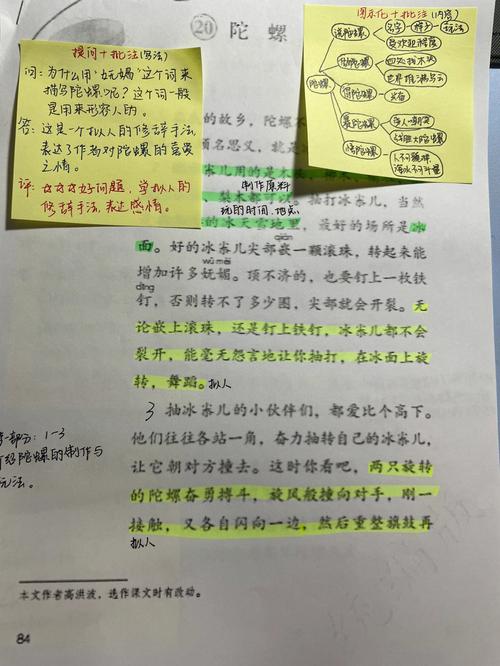 ⑳ 陀 螺
提问+批注(写法)
问:为什么用"妩媚"这个词来
描写陀螺呢?这个词一般
是用来形容人的。
答:这是一个拟人的修辞手法,
表达了作者对陀螺的喜爱
之情。
评:☆☆☆好问题,掌握拟人的
修辞手法,表达感情。
图示化+批注(内容)
陀螺
说陀螺
名字
样子
玩法
喜欢
做陀螺
得陀螺
斗陀螺
悟陀螺
人不可貌相
海水不可斗量
的故乡,陀螺不
顾名思义,就是冰
冰尜儿用的是木
制作原料
梨木都可以。抽打冰尜儿,当然
玩的时间、地点
冰天雪地里,最好的场所是冰
面。好的冰尜儿尖部嵌一颗滚珠,转起来能
qiàn
wǔ mèi
增加许多妩媚。顶不济的,也要钉上一枚铁
dīng
钉,否则转不了多少圈,尖部就会开裂。无
论嵌上滚珠,还是钉上铁钉,冰尜儿都不会
裂开,能毫无怨言地让你抽打,在冰面上旋
转,舞蹈。拟人
3 抽冰尜儿的小伙伴们,都爱比个高下。
部分:1-3
介绍陀螺的制作与
玩法。
他们往往各站一角,奋力抽转自己的冰尜儿,
让它朝对方撞去。这时你看吧,两只旋转
的陀螺奋勇搏斗,旋风般撞向对手,刚一
接触,又各自闪向一边,然后重整旗鼓再
拟人
本文作者高洪波,选作课文时有改动。
84